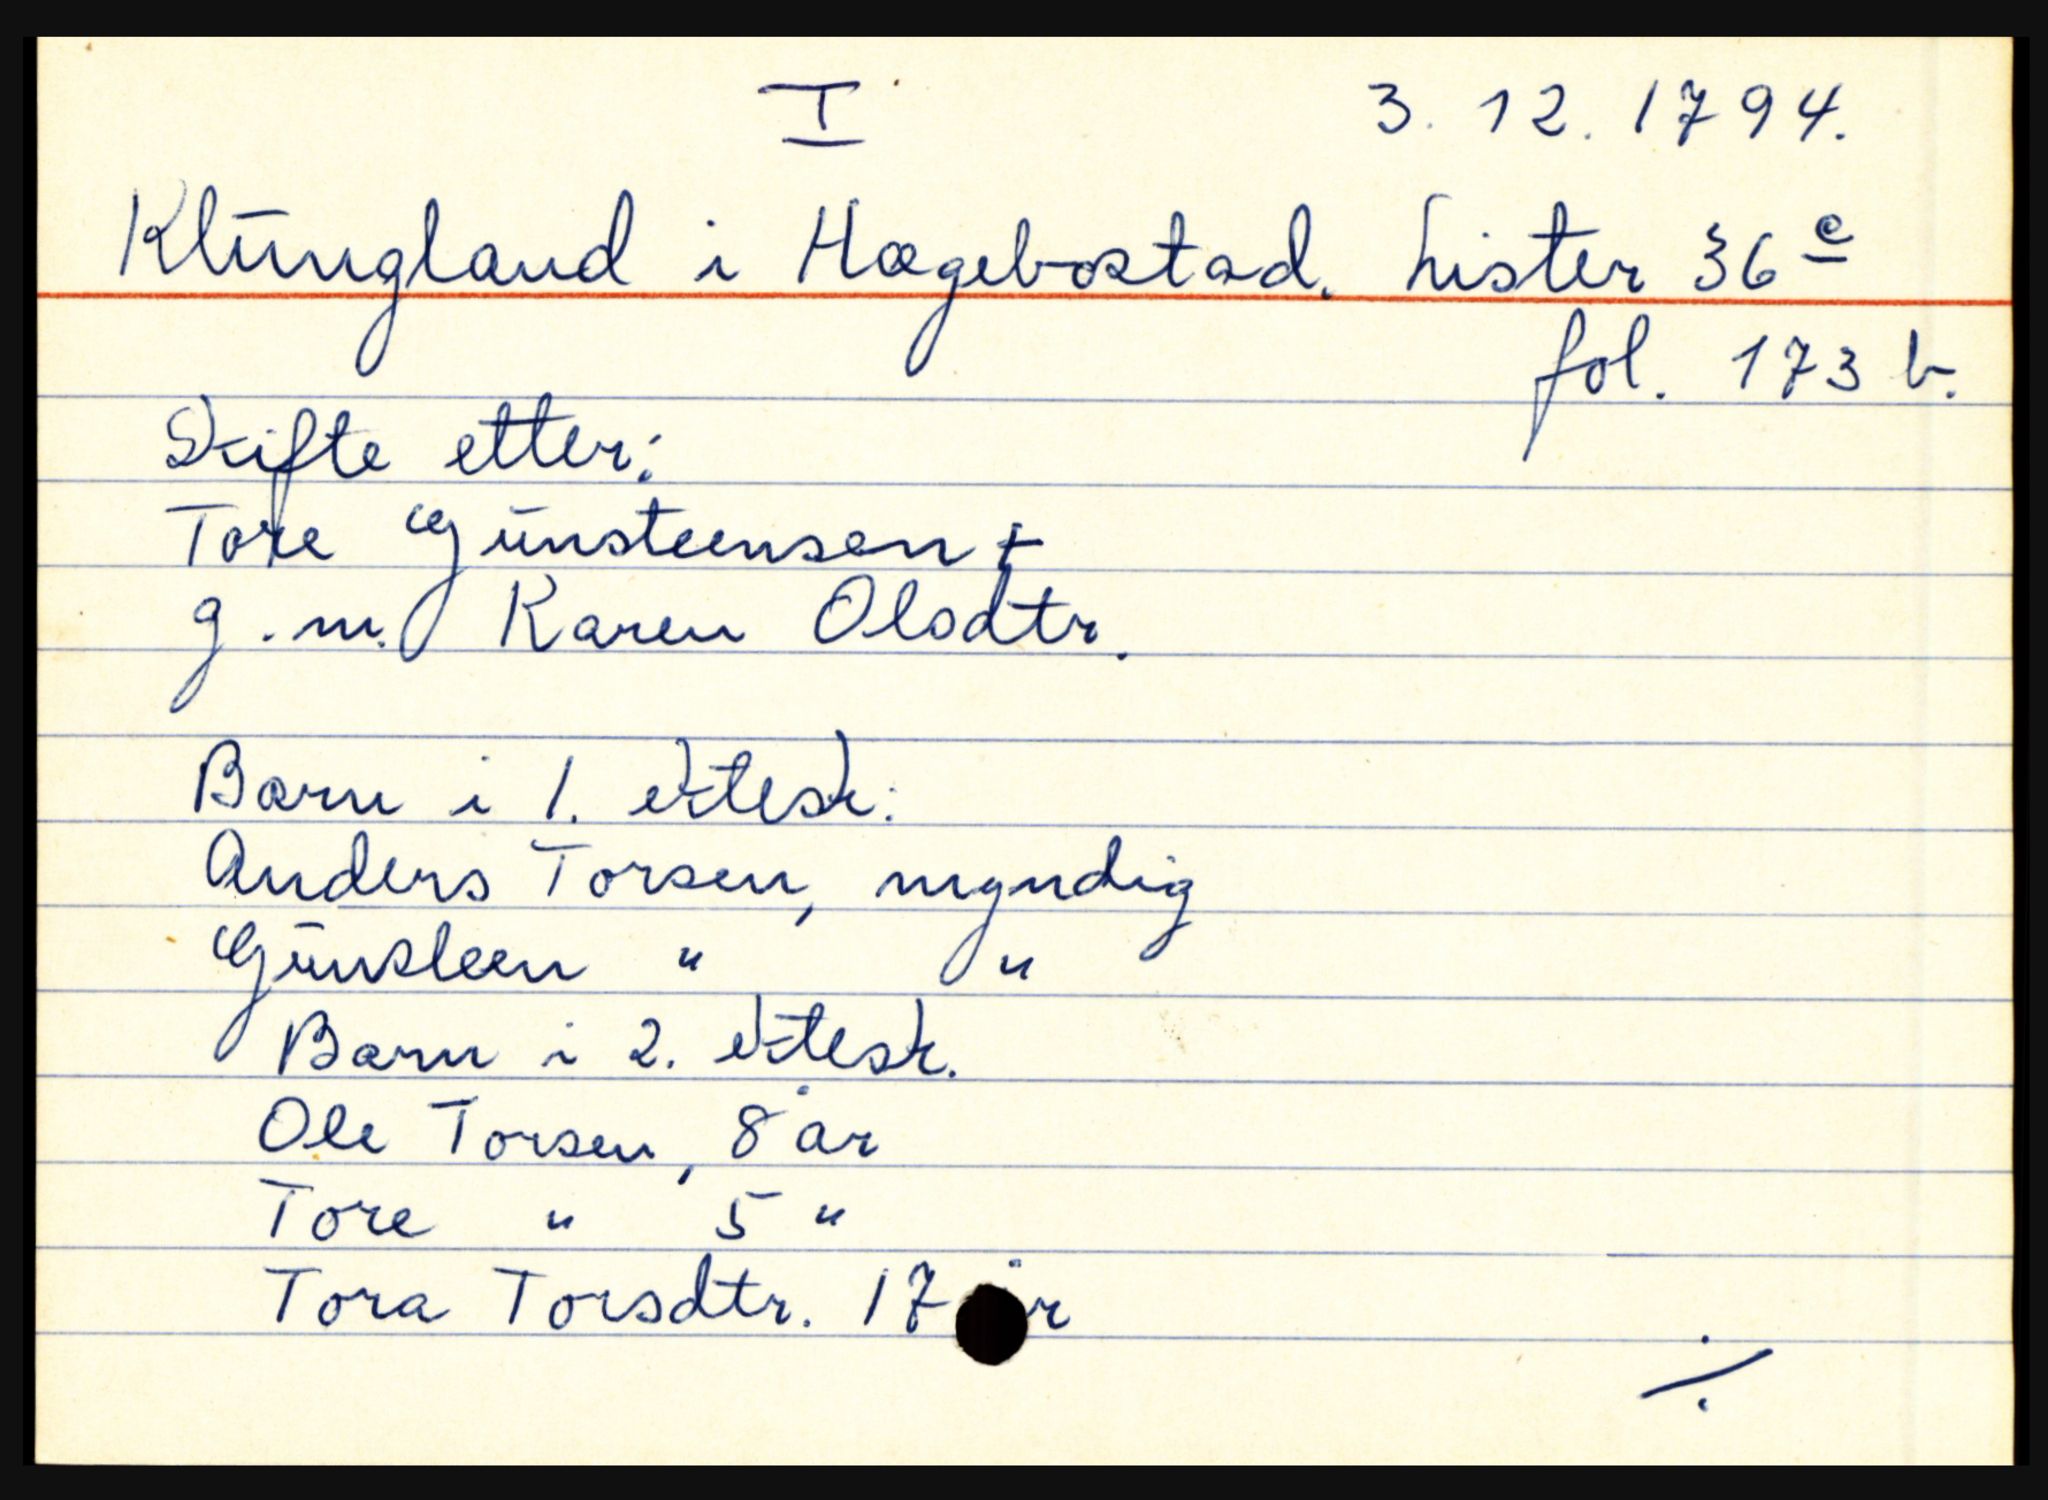 I 3. 12. 1794.
Klūngland i Hægebostad. Lister 36 c
fol. 173 b.
Skifte etter:
Tore Gūnsteensen +
g.m. Karen Olsdtr.
Barn i 1. ektesk:
Anders Torsen, myndig
Gūnsteen " "
Barn i 2. ektesk.
Ole Torsen, 8 år
Tore " 5 "
Tora Torsdtr. 17 år
./.